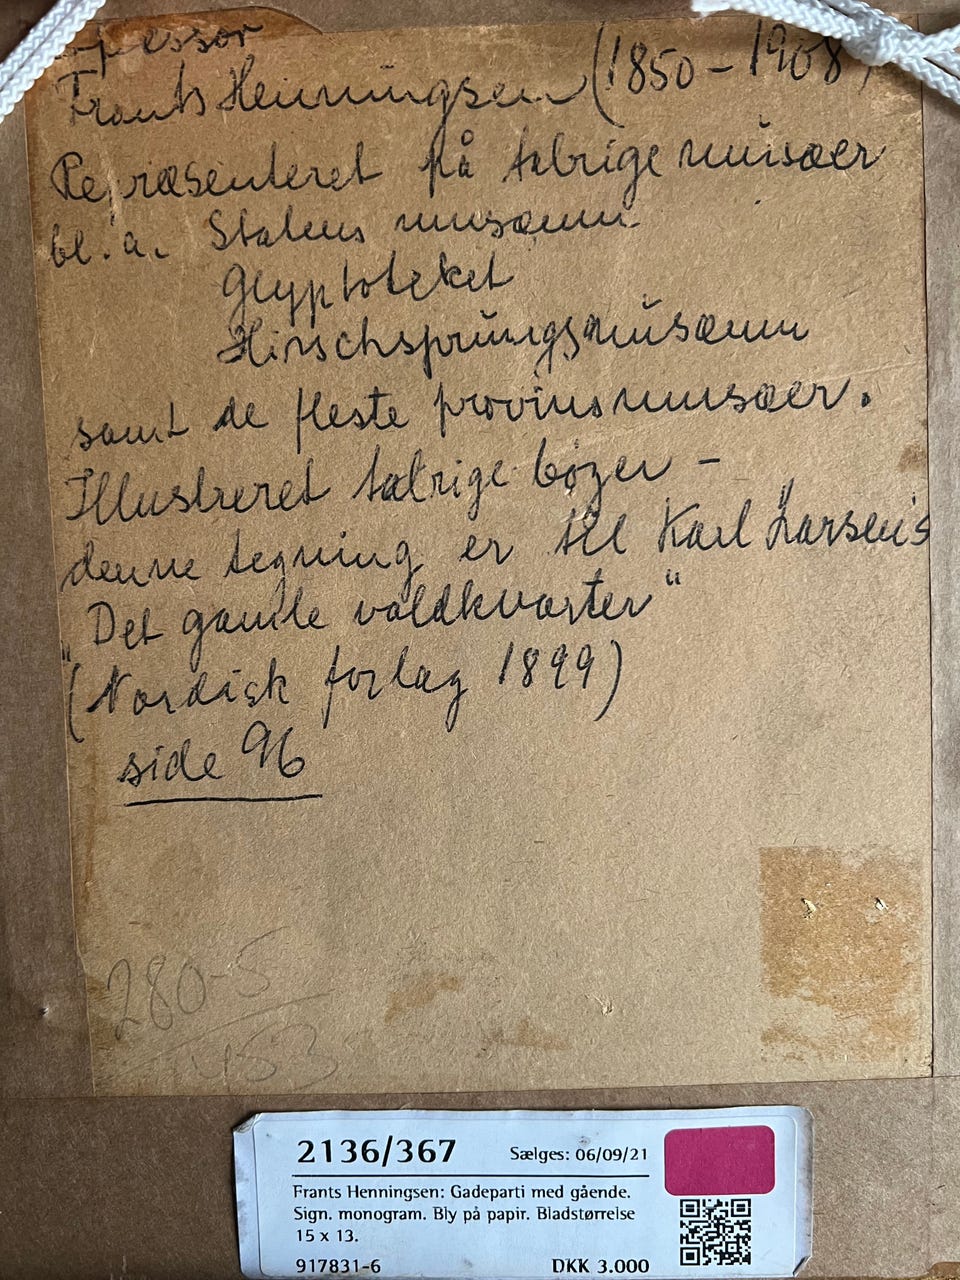 Frants Henningsen (1850-1908)
Repræsenteret på talrige musæer
bl.a. Statens musæum
Glyptoteket
Hirschsprungsmusæum
samt de fleste provinsmusæer.
Illustreret talrige bøger -
denne tegning er til Karl Larsen's
"Det gamle voldkvarter"
(Nordisk forlag 1899)
side 96
280-5
453
2136/367 Sælges: 06/09/21
Frants Henningsen: Gadeparti med gående.
Sign. monogram. Bly på papir. Bladstørrelse
15 x 13.
917831-6 DKK 3.000